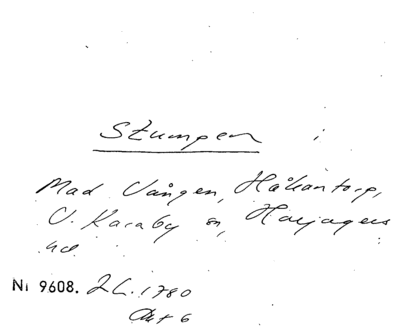 Stumpen i
Mad Vången, Håkantorp,
V. Karaby sn, Harjagers
hd.
Nr 9608. 26.1780
Akt 6